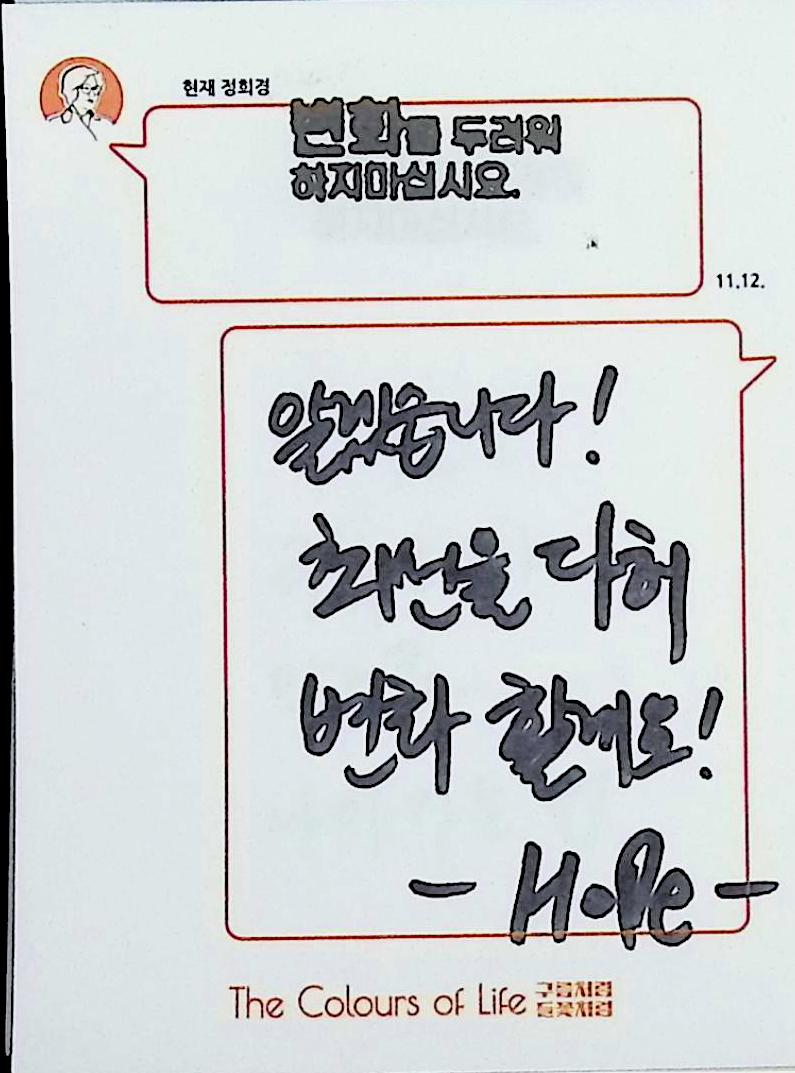 현재 정희경
변화를 두려워
하지마십시요.
11.12.
알겠습니다!
최선을 다해
변화 할게요!
- HoPe -
The Colours of Life 구름처럼
들꽃처럼